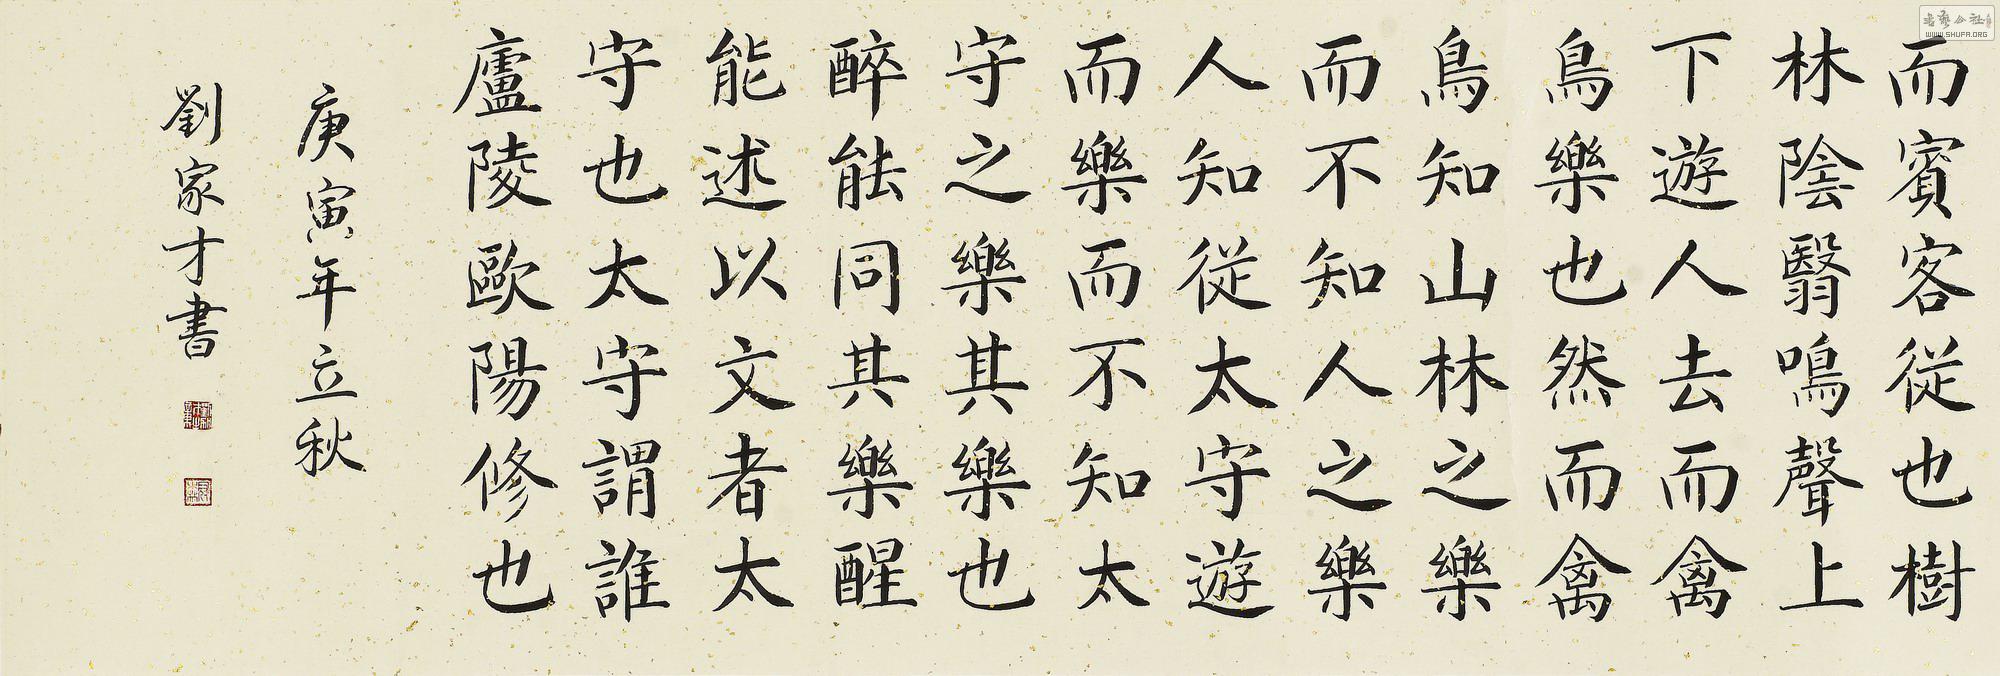 而賓客従也樹
林陰翳鳴聲上
下遊人去而禽
鳥樂也然而禽
鳥知山林之樂
而不知人之樂
人知從太守遊
而樂而不知太
守之樂其樂也
醉能同其樂醒
能述以文者太
守也太守謂誰
廬陵歐陽修也
庚寅年立秋
劉家才書
WWW.SHUFA.ORG